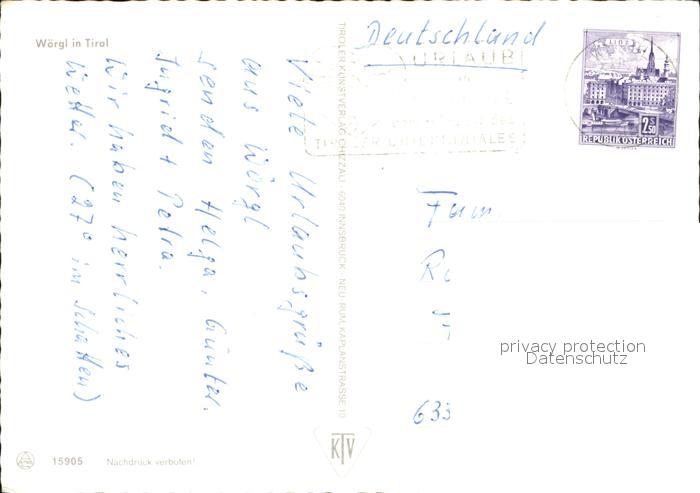 Wörgl in Tirol
Viele Urlaubsgrüße
aus Wörgl
senden Helga, Günter,
Ingrid + Petra.
Wir haben herrliches
Wetter. (27° im Schatten)
15905 Nachdruck verboten!
TIROLER KUNSTVERLAG CHIZZALI · 6040 INNSBRUCK · NEU-RUM, KAPLANSTRASSE 10
KTV
Deutschland
URLAUB
IN
DES
TIROLER UNTERINNTALES
LINZ
2.50
S
REPUBLIK ÖSTERREICH
Fam.
633
privacy protection
Datenschutz